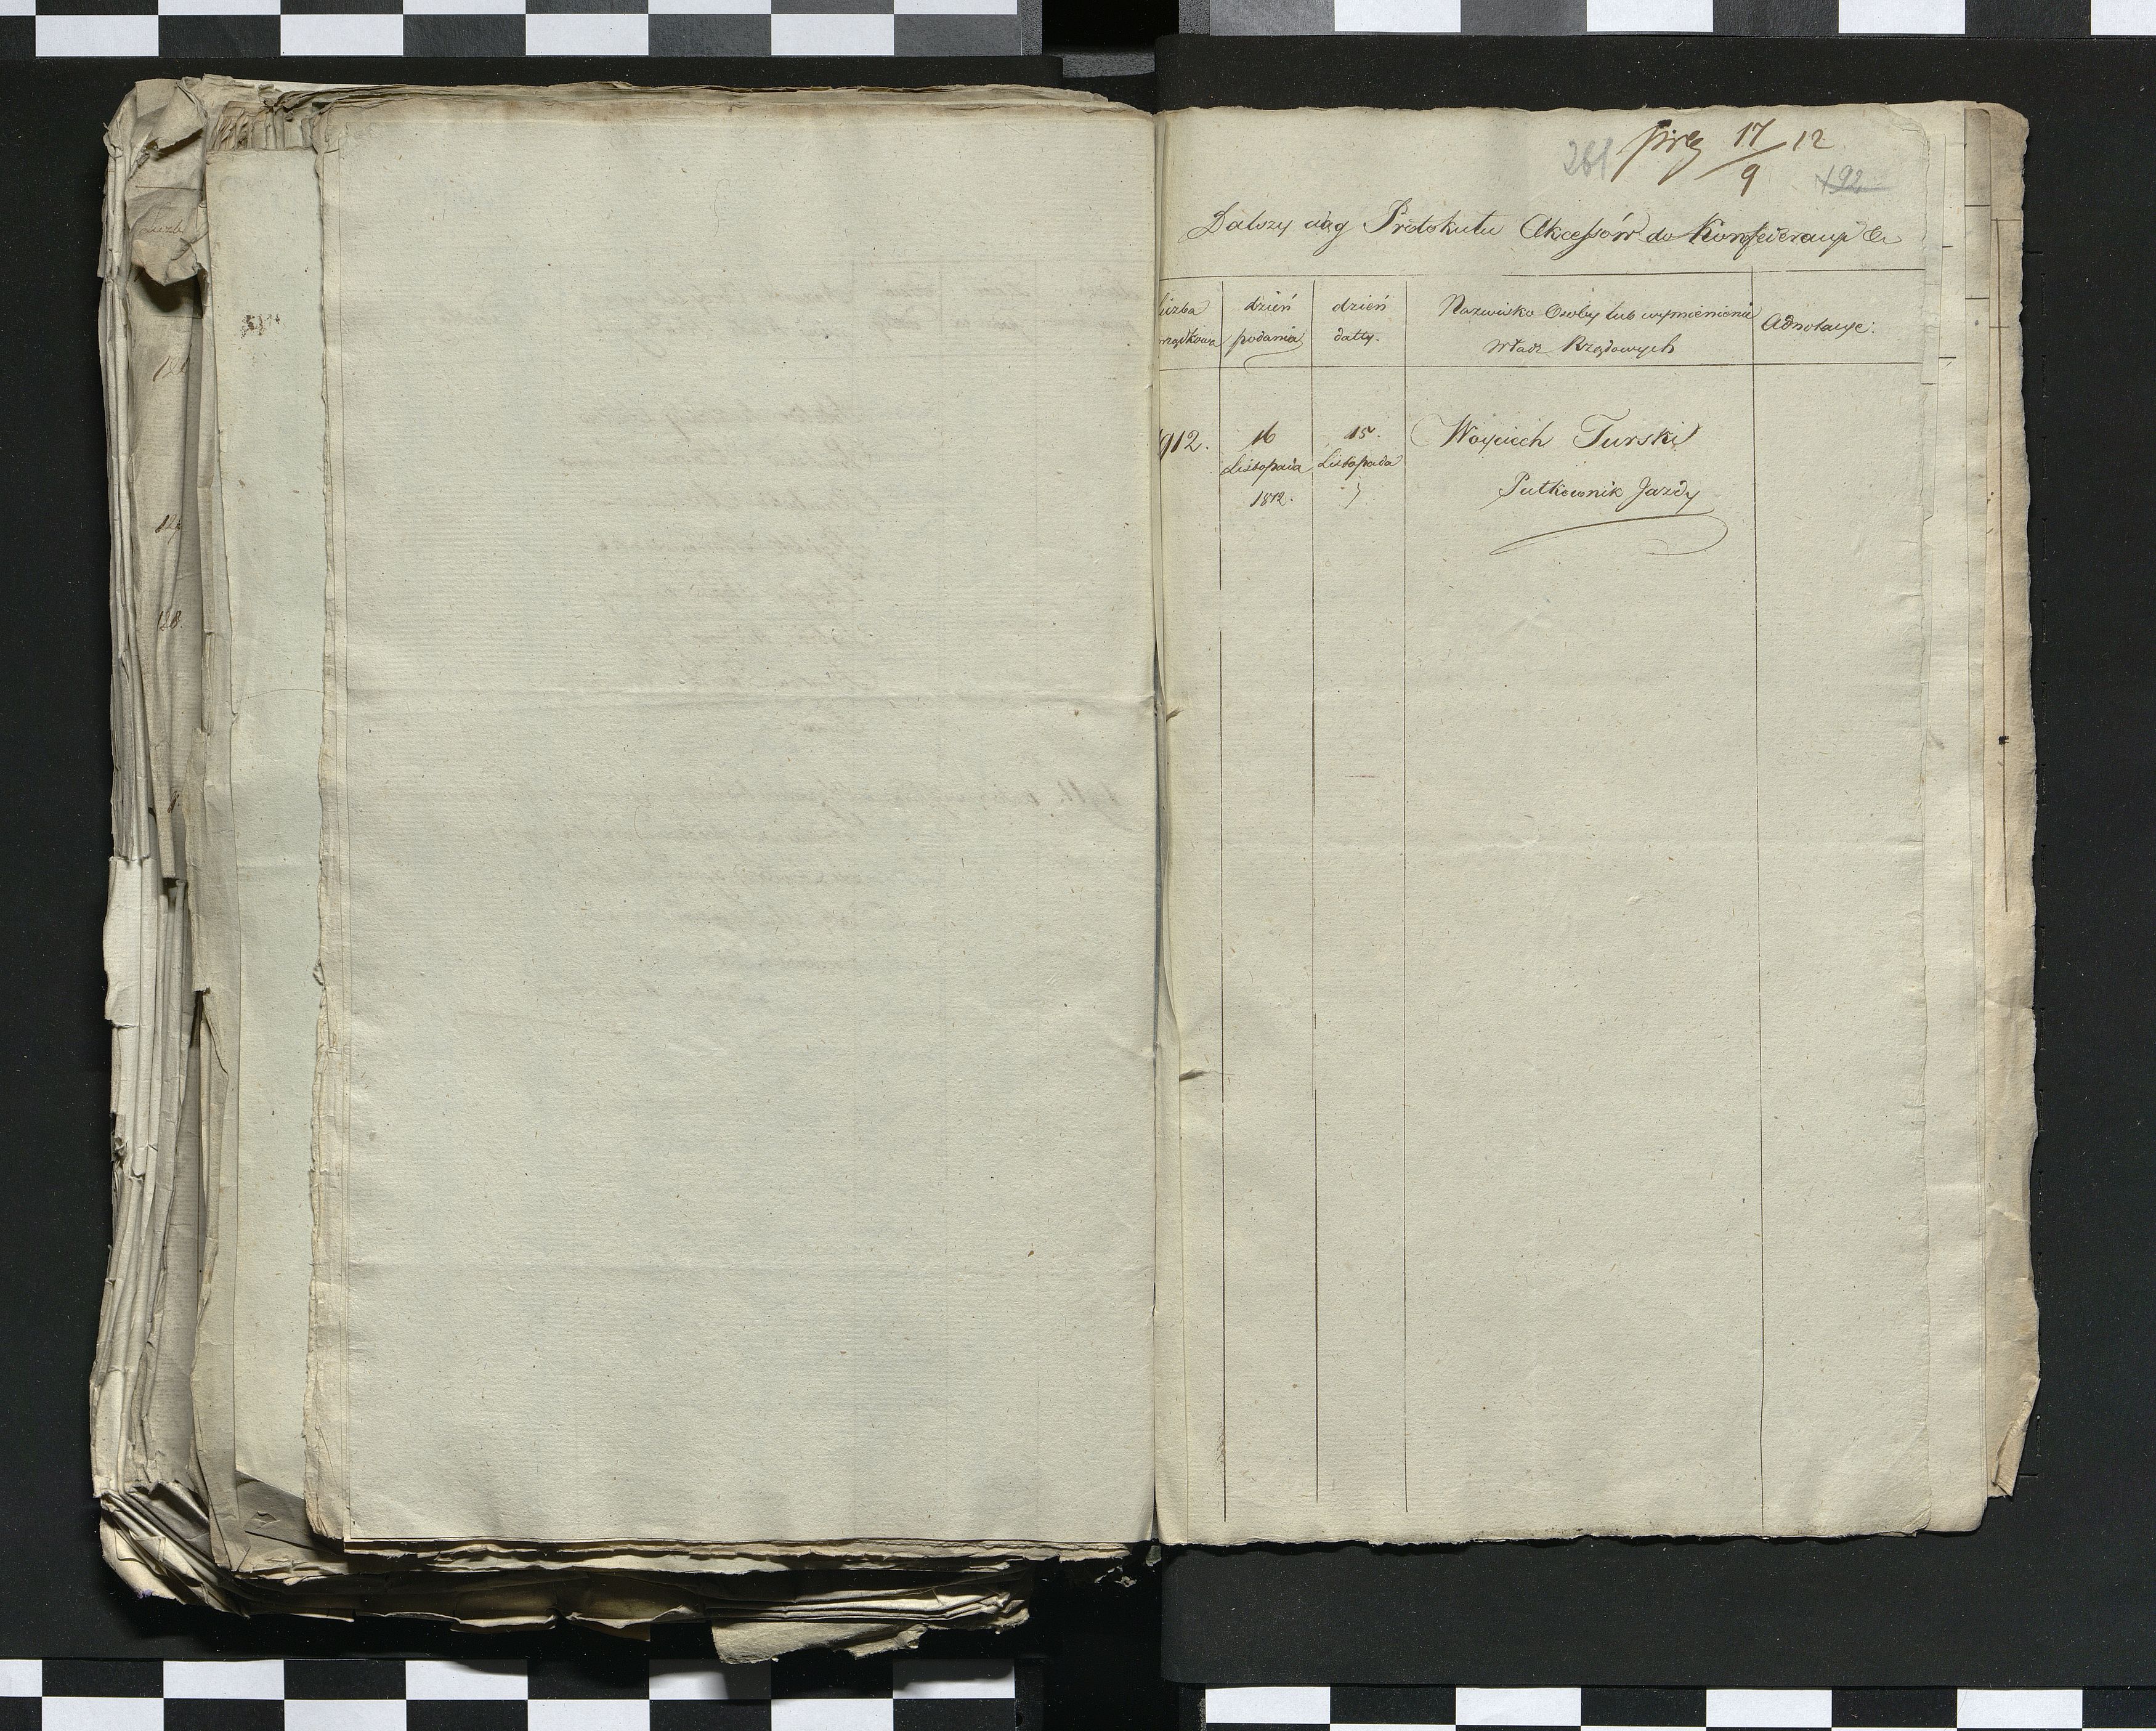 281 prez 17/9 12
192
Dalszy ciąg Protokułu Akcessów do Konfederacyi &
Liczba
rządkowa
dzień
podania
dzień
datty.
Nazwisko Osoby lub wymienienie
Władz Rządowych
Adnotacye.
912.
16
Listopada
1812.
15.
Listopada
Woyciech Turski
Pułkownik Jazdy
128.